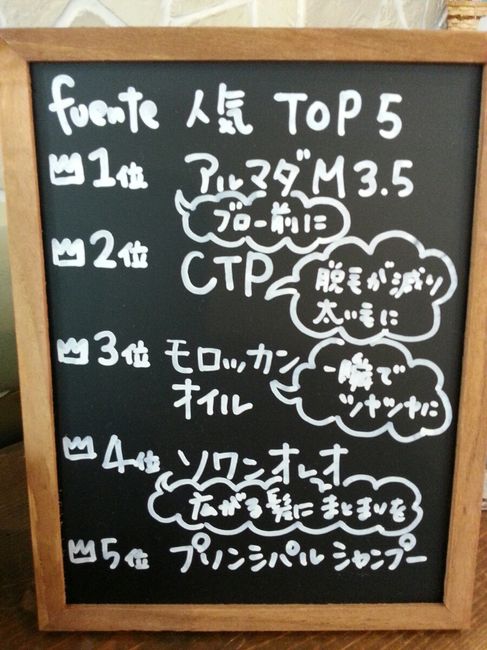 fuente 人気 TOP 5
1位 アルマダ M 3.5
ブロー前に
2位 CTP
脱毛が減り
太い毛に
3位 モロッカン
オイル
一瞬で
ツヤツヤに
4位 ソワンオレオ
広がる髪にまとまりを
5位 プリンシパルシャンプー